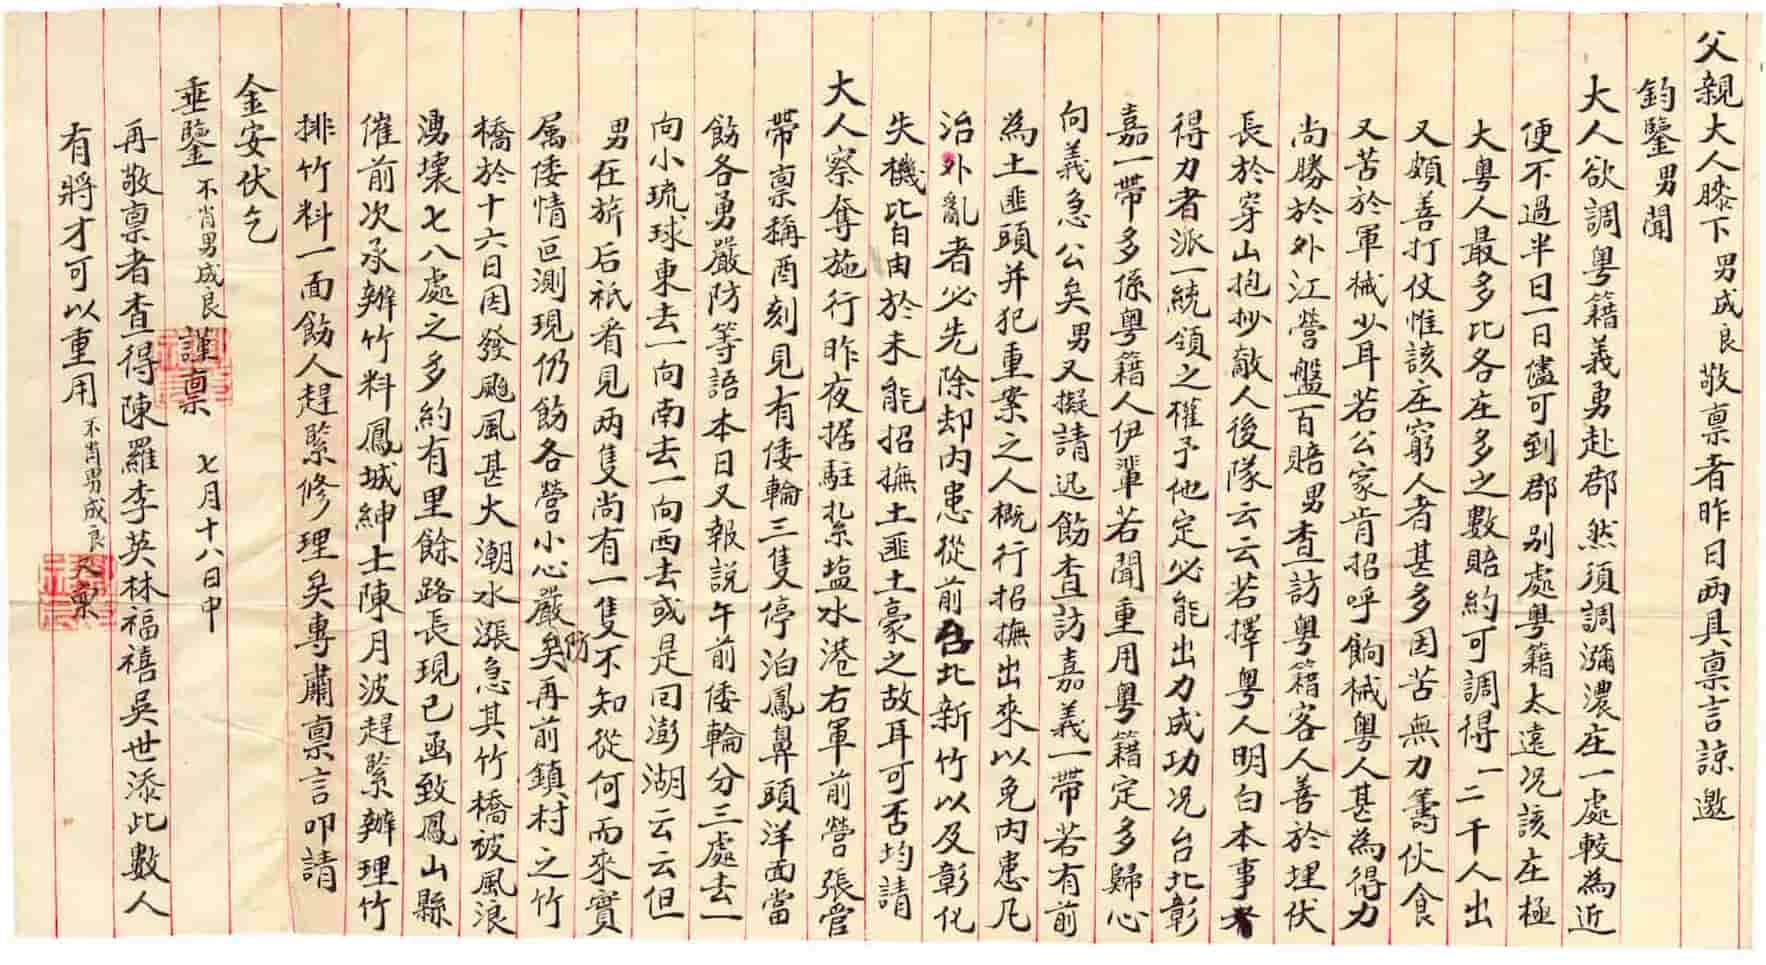 父親大人膝下男成良敬稟者昨日兩具稟言諒邀
鈞鑒男聞
大人欲調粵籍義勇赴郡然須調瀰濃庄一處較為近
便不過半日一日儘可到郡别處粵籍太遠况該庄極
大粵人最多比各庄多之數賠約可調得一二千人出
又頗善打仗惟該庄窮人者甚多因苦無力籌伙食
又苦於軍械少耳若公家肯招呼餉械粵人甚為得力
尚勝於外江營盤百賠男查訪粵籍客人善於埋伏
長於穿山抱抄敵人後隊云云若擇粵人明白本事者
得力者派一統領之權予他定必能出力成功况台北彰
嘉一帶多係粵籍人伊輩若聞重用粵籍定多歸心
向義急公矣男又擬請迅飭查訪嘉義一帶若有前
為土匪頭并犯重案之人概行招撫出來以免内患凡
治外亂者必先除却内患從前台北新竹以及彰化
失機皆由於未能招撫土匪土豪之故耳可否均請
大人察奪施行昨夜据駐紮塩水港右軍前營張管
帶稟稱酉刻見有倭輪三隻停泊鳳鼻頭洋面當
飭各勇嚴防等語本日又報說午前倭輪分三處去一
向小琉球東去一向南去一向西去或是回澎湖云云但
男在旂后衹看見兩隻尚有一隻不知從何而來實
属倭情叵測現仍飭各營小心嚴防矣再前鎮村之竹
橋於十六日因發颱風甚大潮水漲急其竹橋被風浪
湧壞七八處之多約有里餘路長現已函致鳳山縣
催前次承辦竹料鳳城紳士陳月波趕緊辦理竹
排竹料一面飭人趕緊修理矣專肅稟言叩請
金安伏乞
垂鑒不肖男成良謹稟 七月十八日申
再敬稟者查得陳羅李英林福禧吳世添此數人
有將才可以重用不肖男成良又稟